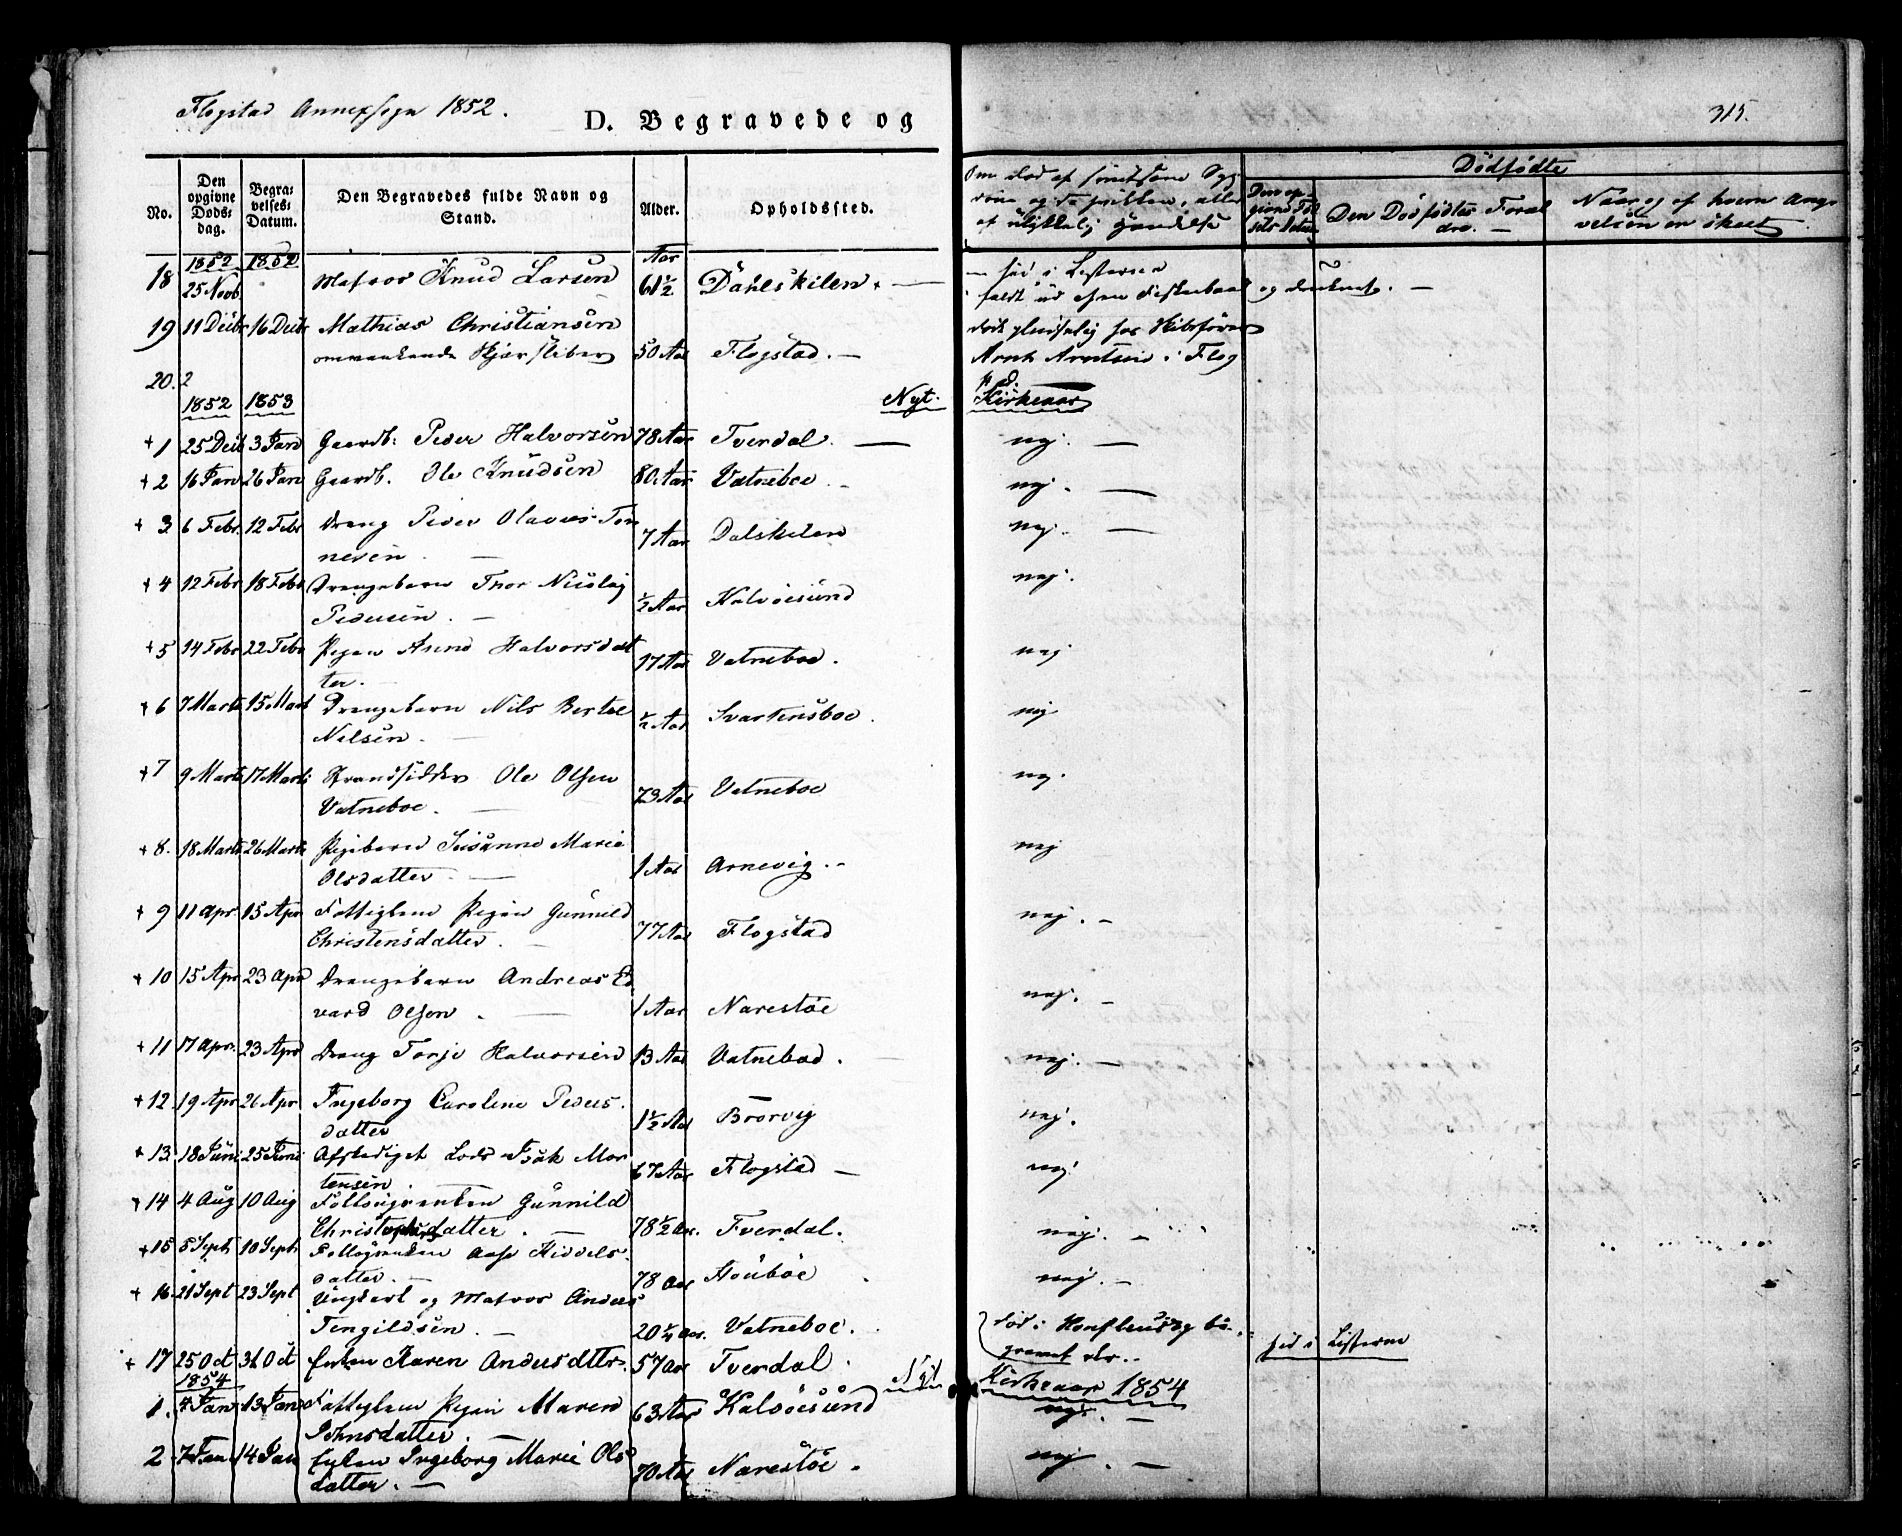 Flogstad Annexsogn 1852.
D. Begravede og
315.
No.
Den opgivne Døds-dag.
Begra-velses-Datum.
Den Begravedes fulde Navn og Stand.
Alder.
Opholdssted.
Dødfødte
Den Dødfødtes Foræl
dre. —
Naar og af hvem Ang
velsen er skeet.
1852 1852 Aar
18 25 Novb. Matros Knud Larsen 61½ Dahlskilen. — — sød i Listeren
faldt ud af en Fiskerbaad og druknet. —
19 11 Decbr 16 Decbr Mathias Christiansen død pludselig hos Skibsfører
omvankende 50 Aar Flogstad. — Arnt Arntsen i Flog
20. 2 st d.
1852 1853 Nyt. Kirkeaar
+ 1 25 Decb 3 Jan Gaardb: Peder Halvorsen 78 Aar Tverdal. — nej. —
+ 2 16 Jan 26 Jan Gaardb. Ole Knudsen 80 Aar Vatneboe. — nej. —
+ 3 6 Febr. 12 Febr Dreng Peder Olaves Tøn 7 Aar Dalskilen nej. —
nesen. —
+ 4 12 Febr 18 Febr Drengebarn Thor Nicolaj ½ Aar Kalvøesund nej.
Pedersen. —
+ 5 14 Febr 22 Febr Pigen Anne Halvorsdat 17 Aar Vatneboe. nej
ter. —
+ 6 7 Marts 15 Mart Drengebarn Nils Bertel ½ Aar Svartensboe. nej
Nilsen. —
+ 7 9 Marts 17 Marts Strandsidder Ole Olsen 73 Aar Vatneboe nej.
Vatneboe. —
+ 8. 18 Marts 26 Marts Pigebarn Susanne Marie 1 Aar Arnevig. - nej
Olsdatter. —
+ 9 11 Apr. 15 Apr Fattiglem Pigen Gunnild 77 Aar Flogstad nej. —
Christensdatter. —
+ 10 15 Apr 23 Apr Drengebarn Andreas Ed 1 Aar Narestøe nej. —
vard Olsen. —
+ 11 17 Apr. 23 Apr Dreng Torje Halvorsen 13 Aar Vatneboe. nej. —
+ 12. 19 Apr 26 Apr Ingeborg Caroline Peders. 1½ Aar Brorvig nej.
datter
+ 13 18 Juni 25 Juni Afskediget Lods Isak Mor 67 Aar Flogstad — nej
tensen. —
+ 14 4 Aug 10 Aug Gunnild
Christophersdatter. — 78½ Aar. Tverdal. nej. —
+ 15 5 Sept 10 Sept Aase Kiddels. 78 Aar nej. —
datter. —
+ 16 21 Sept 23 Sept Ungkarl og Matros Anders
Tengildsen. — 20¼ Aar. Vatneboe. død i Honfleur og be-
gravet der.. sød i Listeren
+ 17 25 Oct 31 Oct Enken Karen Andersdttr. 57 Aar Tverdal.
1854 Nyt Kirkeaar 1854
1. 4 Jan 13 Jan Fattiglem Pigen Maren 63 Aar Kalvøesund nej. —
Johnsdatter. —
2 7 Jan 14 Jan Enken Ingeborg Marie Ols 70 Aar Narestøe. nej —
datter. —